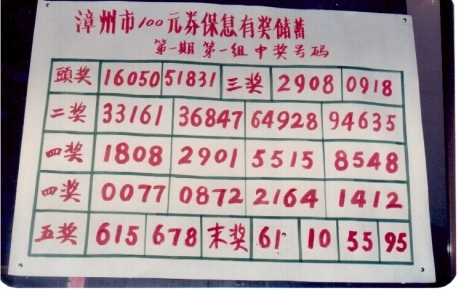 漳州市100元券保息有奖储蓄
第一期第一组中奖号码
頭奖 16050 51831 三奖 2908 0918
二奖 33161 36847 64928 94635
四奖 1808 2901 5515 8548
四奖 0077 0872 2164 1412
五奖 615 678 末奖 61 10 55 95